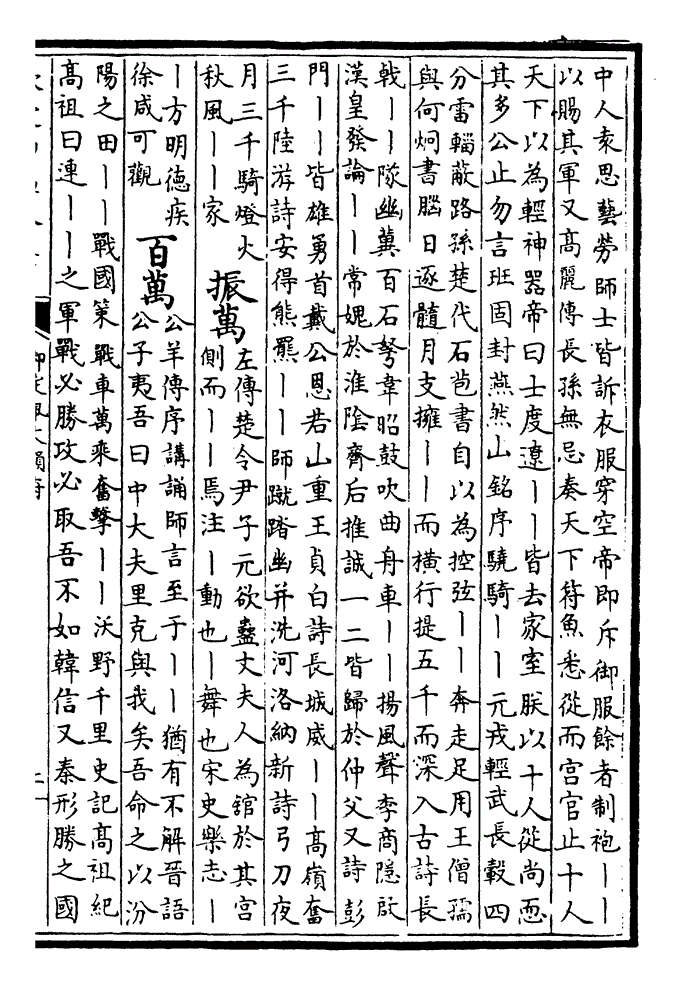 中人袁思藝勞師士皆訴衣服穿空帝即斥御服餘者制袍丨丨
以賜其軍又髙麗傳長孫無忌奏天下符魚悉從而宫官止十人
天下以為輕神器帝曰士度遼丨丨皆去家室朕以十人從尚恧
其多公止勿言班固封燕然山銘序驍騎丨丨元戎輕武長轂四
分雷輜蔽路孫楚代石苞書自以為控弦丨丨奔走足用王僧孺
與何炯書腦日逐髓月支擁丨丨而横行提五千而深入古詩長
戟丨丨隊幽冀百石弩韋昭鼓吹曲舟車丨丨揚風聲李商隱啟
漢皇發論丨丨常媿於淮隂齊后推誠一二皆歸於仲父又詩彭
門丨丨皆雄勇首戴公恩若山重王貞白詩長城威丨丨髙嶺奮
三千陸游詩安得熊羆丨丨師蹴踏幽并洗河洛納新詩弓刀夜
月三千騎燈火
秋風丨丨家
振萬
左傳楚令尹子元欲蠱文夫人為舘於其宫
側而丨丨焉注丨動也丨舞也宋史樂志丨
丨方明德疾
徐咸可觀
百萬
公羊傳序講誦師言至于丨丨猶有不解晉語
公子夷吾曰中大夫里克與我矣吾命之以汾
陽之田丨丨戰國策戰車萬乘奮擊丨丨沃野千里史記髙祖紀
髙祖曰連丨丨之軍戰必勝攻必取吾不如韓信又秦形勝之國